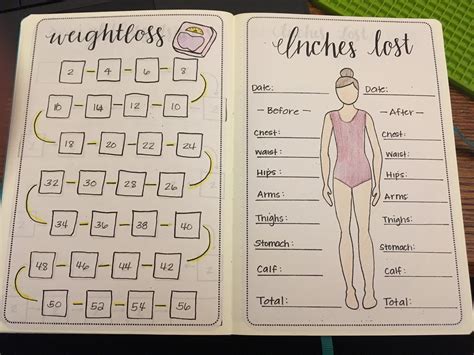 weightloss
2 4 6 8
16 14 12 10
18 20 22 24
32 30 28 26
34 36 38 40
48 46 44 42
50 52 54 56
Inches lost
Date: Date:
-Before- -After-
Chest: Chest:
Waist: Waist:
Hips: Hips:
Arms: Arms:
Thighs: Thighs:
Stomach: Stomach:
Calf: Calf:
Total: Total: